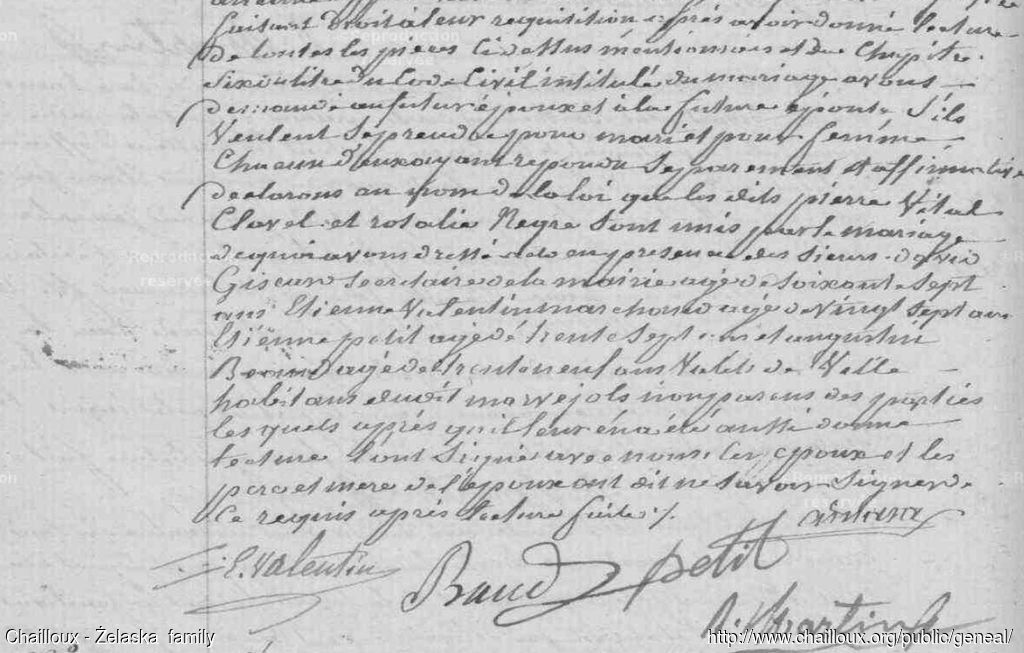 faisant droit à leur requisition après avoir donné lecture
de toutes les pièces ci dessus mentionnées et du Chapitre
Six du titre du Code Civil intitulé du mariage avons
demandé au futur époux et à la future épouse S'ils
Veulent Se prendre pour mari et pour femme
Chacun d'eux ayant repondu Separement et affirmative
declarons au nom de la loi que les dits pierre Vital
Clavel et rosalie Negre Sont unis par le mariage
de quoi avons dressé acte en presence des Sieurs david
Secretaire de la mairie agé de Soixante Sept
ans Etienne Valentin marchand agé de Vingt Sept ans
Etienne petit agé de trente Sept ans et augustin
agé de trente neuf ans Valets de Ville
habitans dudit marvejols non parens des parties
les quels après qu'il leur en a été aussi donné
lecture l'ont Signé avec nous, les époux et les
pere et mere de l'époux ont dit ne Savoir Signer de
Ce requis après lecture faite ./.
E. Valentin
petit
Martin
Reproduction
reservée
Chailloux - Żelaska family
http://www.chailloux.org/public/geneal/